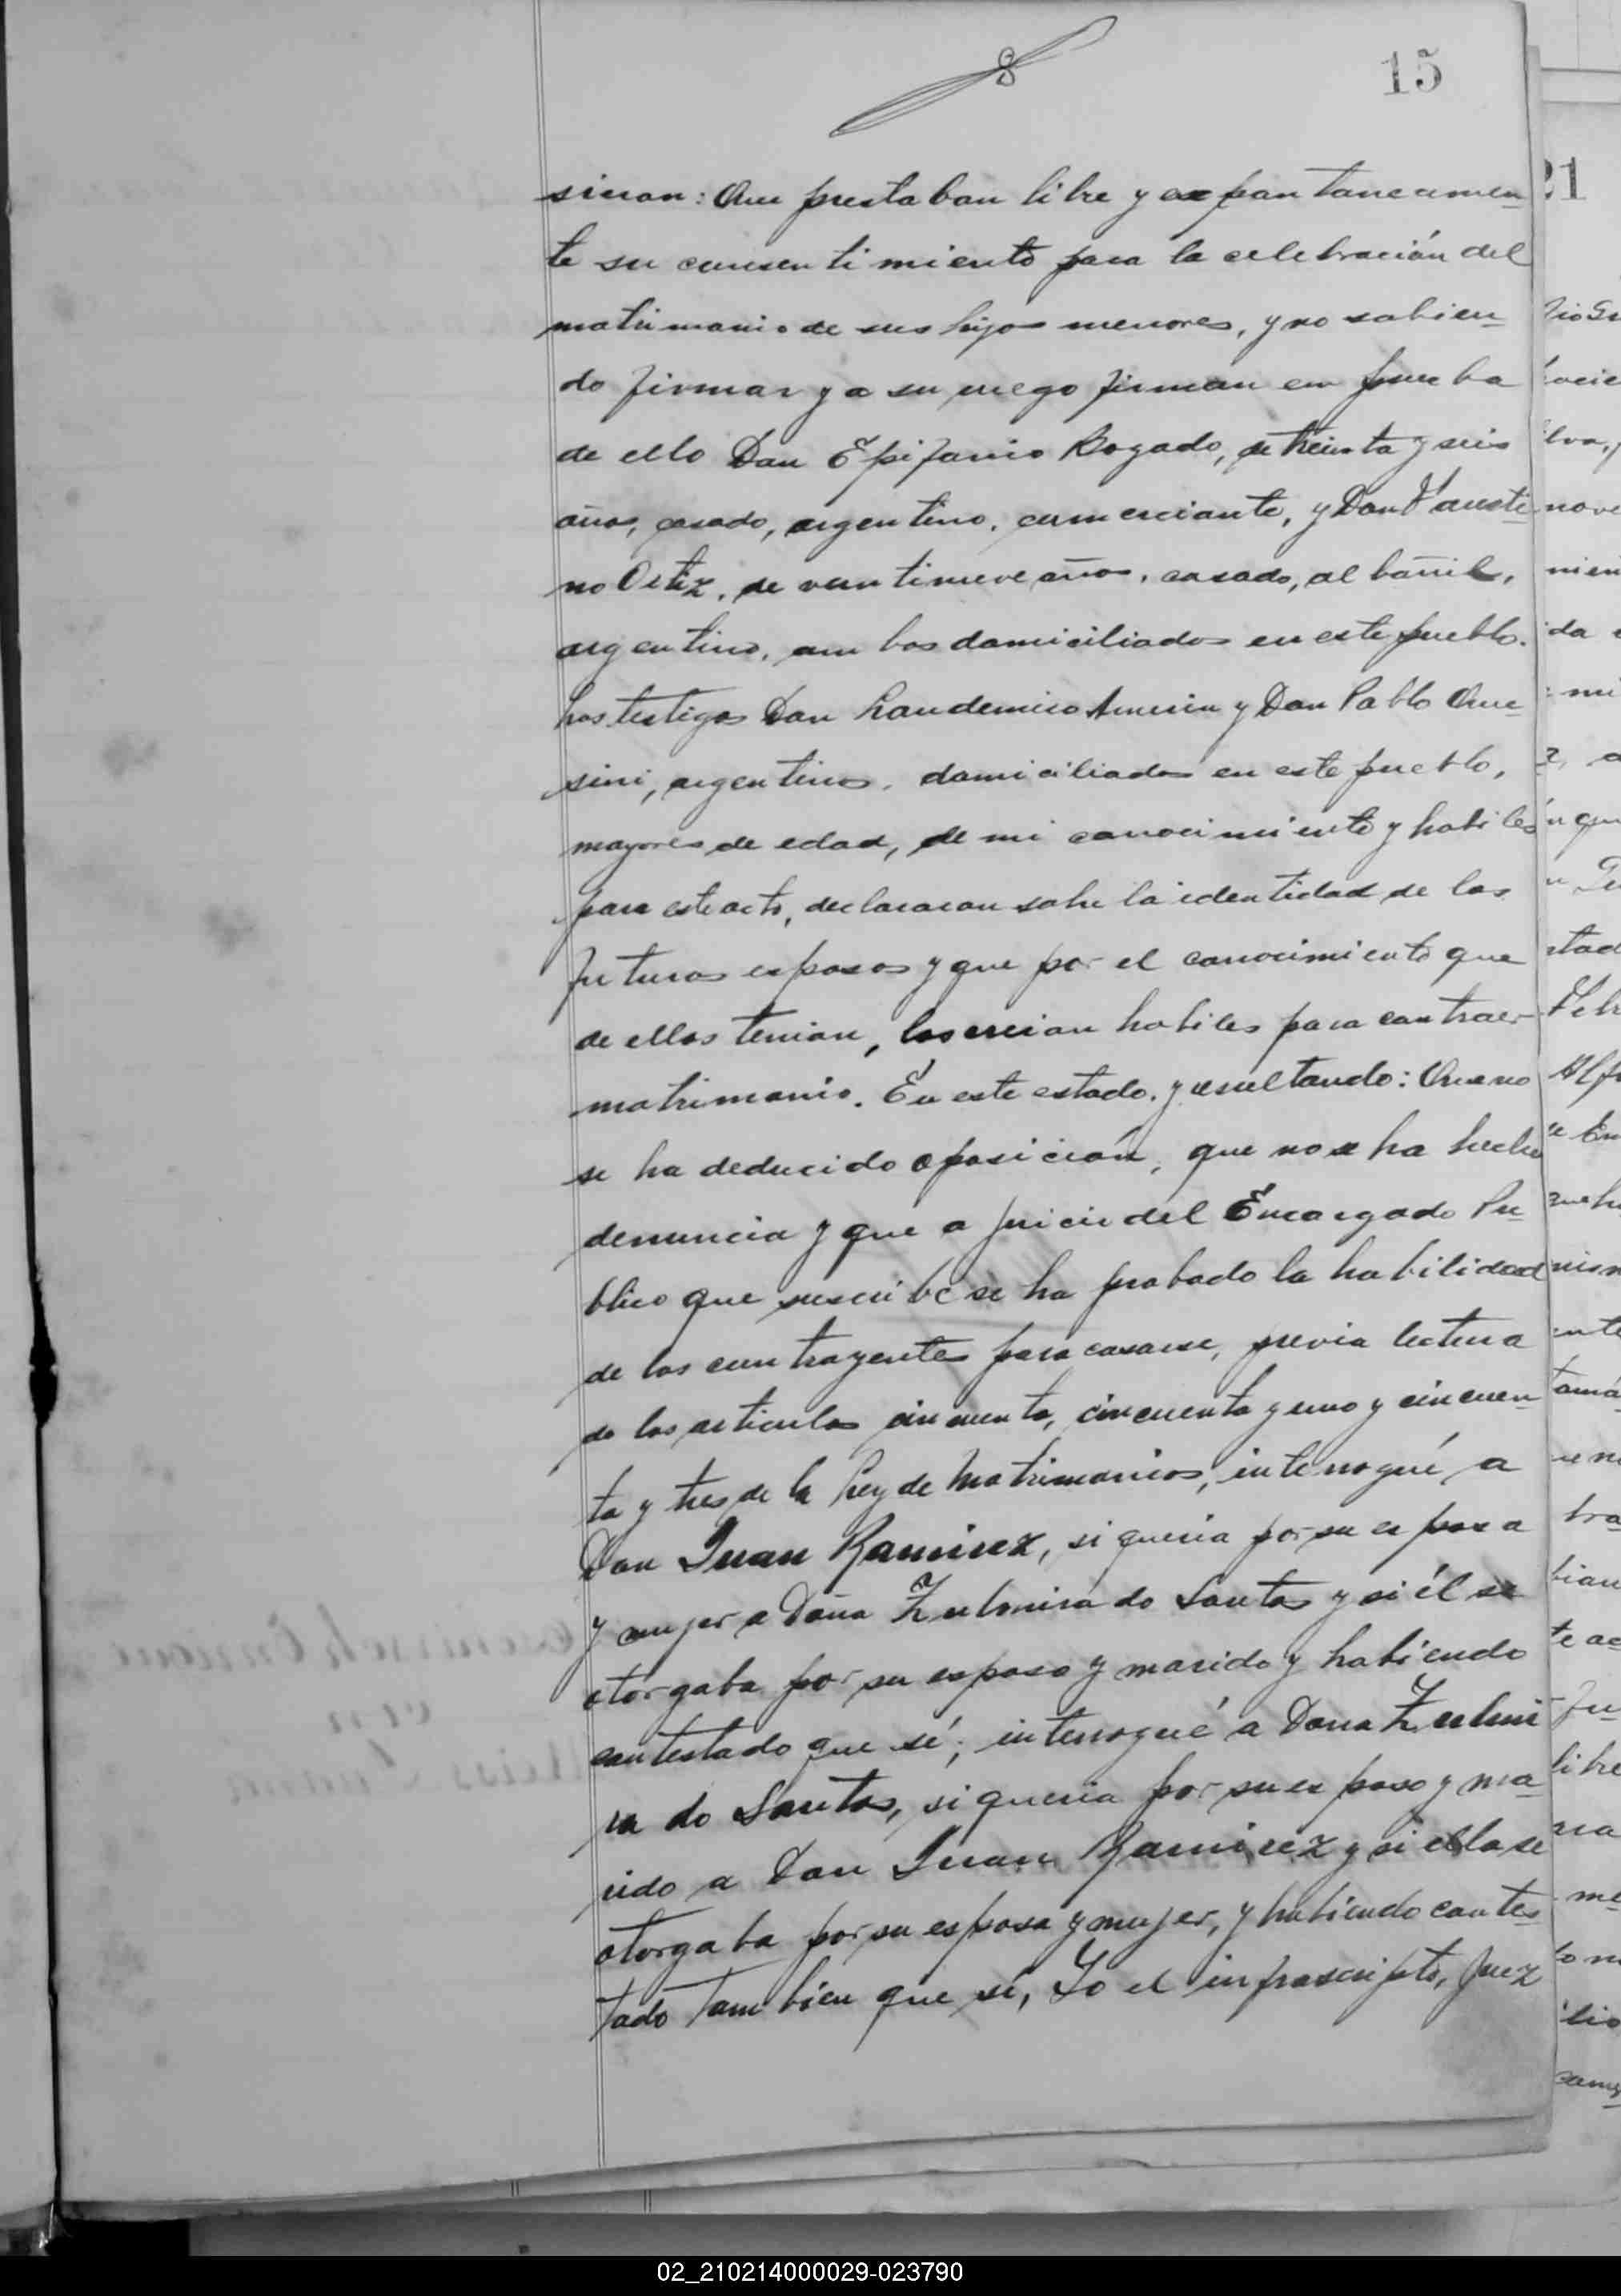 15
sieron: Que prestaban libre y expontaneamen-
te su consentimiento para la celebración del
matrimonio de sus hijos menores, y no sabien-
do firmar y a su ruego firman en prueba
de ello Don Epifanio Bogado, de treinta y seis
años, casado, argentino, comerciante, y Don Fausti-
no Ortiz, de veintinueve años, casado, albañil,
argentino, ambos domiciliados en este pueblo.
Los testigos Don Laudemiro y Don Pablo
sini, argentinos, domiciliados en este pueblo,
mayores de edad, de mi conocimiento y habiles
para este acto, declararon sobre la identidad de los
futuros esposos y que por el conocimiento que
de ellos tenian, los creian habiles para contraer
matrimonio. En este estado, y resultando: Que no
se ha deducido oposición, que no se ha hecho
denuncia y que a juicio del Encargado Pu-
blico que suscribe se ha probado la habilidad
de los contrayentes para casarse, previa lectura
de los articulos cincuenta, cincuenta y uno y cincuen
ta y tres de la Ley de Matrimonios, interrogué a
Don Juan Ramirez, si queria por su esposa
y mujer a Doña Zulmira do Santos y si él se
otorgaba por su esposo y marido y habiendo
contestado que sí; interrogué a Dona Zulmi
ra do Santos, si queria por su esposo y ma-
rido a Don Juan Ramirez y si ella se
otorgaba por su esposa y mujer, y habiendo contes
tado tambien que sí, Yo el infrascripto, Juez
02_210214000029-023790